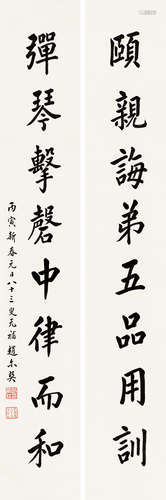 頤親誨弟五品用訓
彈琴擊磬中律而和
丙寅新春元日八十三叟无補趙尔巽